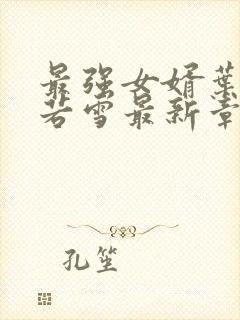 最强女婿葉
若雪最新章
孔笙